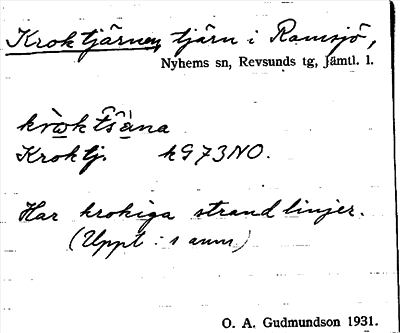 Kroktjärnen, tjärn i Ramsjö,
Nyhems sn, Revsunds tg, Jämtl. l.
Kroktj. kG 73 NO.
Har krokiga strandlinjer.
(Uppt: s ann.)
O. A. Gudmundson 1931.